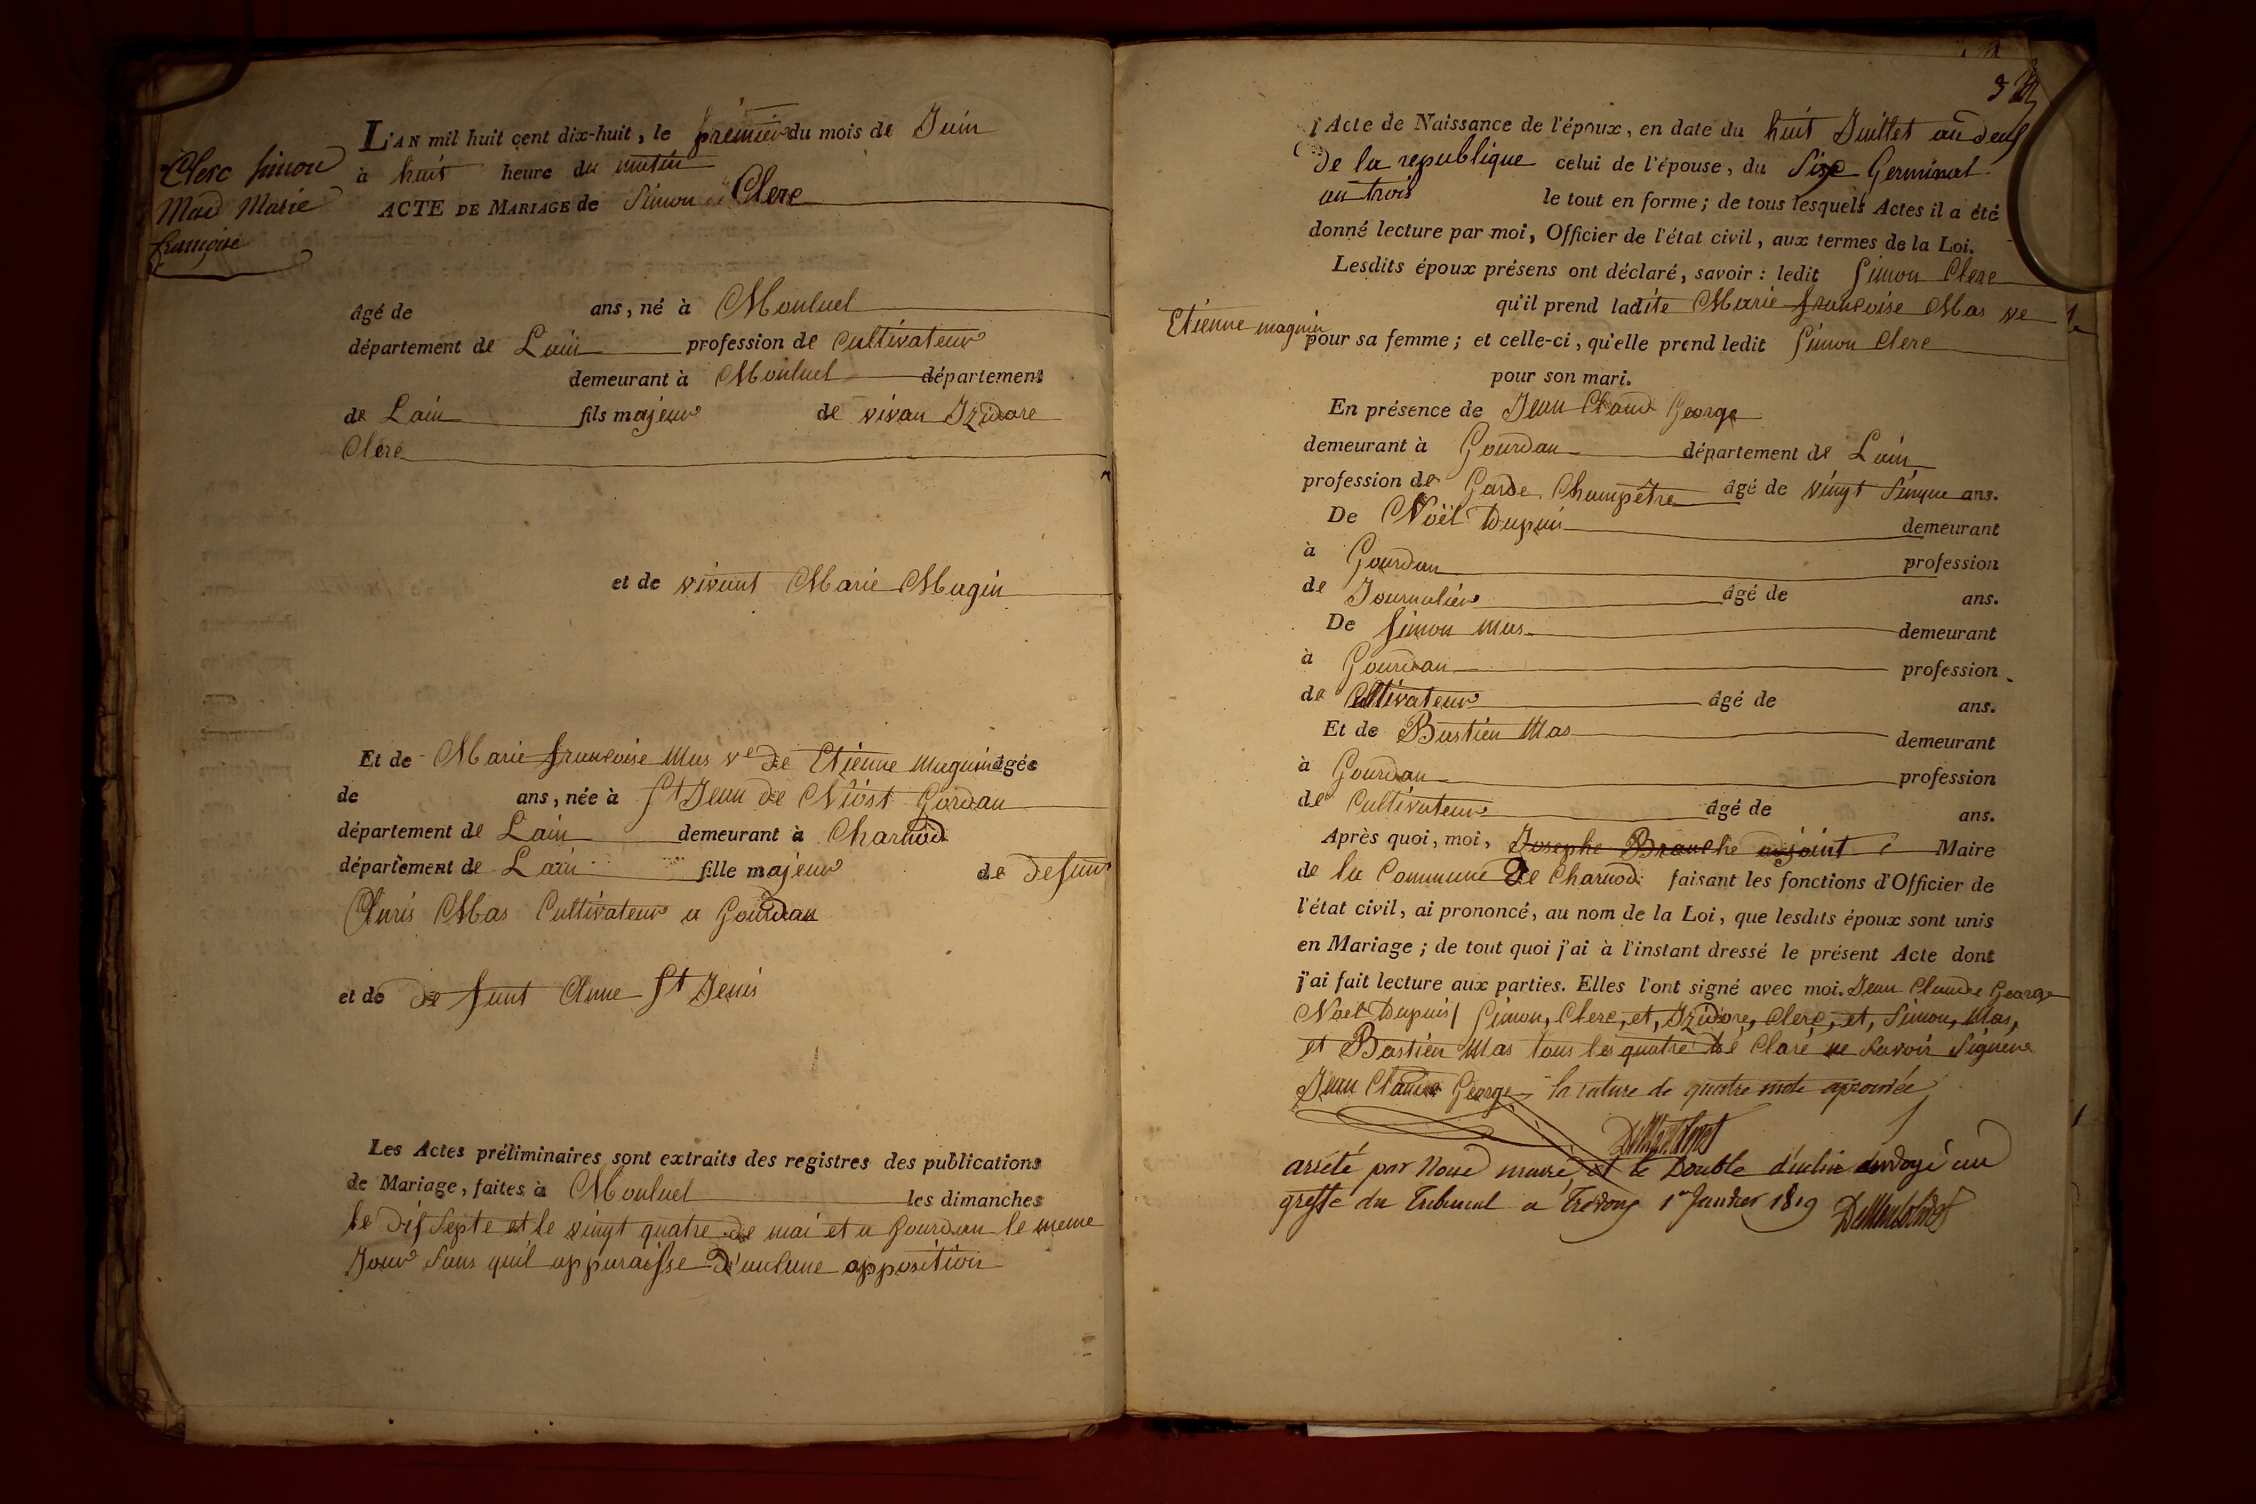 L'AN mil huit cent dix-huit, le premier du mois de Juin
à huit heure du matin
ACTE DE MARIAGE de Simon Clerc
Clerc Simon
Mas Marie
françoise
âgé de ans, né à Monluel
département de Lain profession de Cultivateur
demeurant à Monluel département
de Lain fils majeur de vivan Izidore
Clerc
et de vivant Marie Magin
Et de Marie françoise Mas ve de Etienne Maguin âgée
de ans, née à St Jean de Niost Gordan
département de Lain demeurant à Charnod
département de Lain fille majeur de defun
Claris Mas Cultivateur a Gourdan
et de de funt Anne St Jenis
Les Actes préliminaires sont extraits des registres des publications
de Mariage, faites à Monluel les dimanches
le dis septe et le vingt quatre de mai et a Gourdan le meme
Jour sans quil apparaisse d'aucune opposition
l'Acte de Naissance de l'époux, en date du huit Juillet an deus
de la republique celui de l'épouse, du Sixe Germinal
an trois le tout en forme; de tous lesquels Actes il a été
donné lecture par moi, Officier de l'état civil, aux termes de la Loi.
Lesdits époux présens ont déclaré, savoir: ledit Simon Clerc
qu'il prend ladite Marie françoise Mas ve
Etienne maguin pour sa femme; et celle-ci, qu'elle prend ledit Simon Clerc
pour son mari.
En présence de Jean Claude George
demeurant à Gourdan département de Lain
profession de Garde Champêtre âgé de vingt Sinque ans.
De Noël Dupuis demeurant
à Gourdan profession
de Journalier âgé de ans.
De Simon Mas demeurant
à Gourdan profession
de Cultivateur âgé de ans.
Et de Bastien Mas demeurant
à Gourdan profession
de Cultivateur âgé de ans.
Après quoi, moi, Josephe Branche adjoint Maire
de la Commune de Charnod faisant les fonctions d'Officier de
l'état civil, ai prononcé, au nom de la Loi, que lesdits époux sont unis
en Mariage; de tout quoi j'ai à l'instant dressé le présent Acte dont
j'ai fait lecture aux parties. Elles l'ont signé avec moi. Jean Claude George
Noël Dupuis Simon, Clerc, et, Izidore, Clerc, et, Simon, Mas,
et Bastien Mas tous les quatre dé Claré ne Savoir Signere
Jean Claude George la rature de quatre mots approuvée
arrété par Nous maire, et le Double d'iceluie envoyé au
greffe du Tribunal a Trévoux 1er Janvier 1819